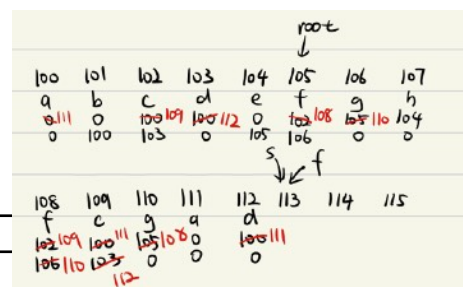 root
100 101 102 103 104 105 106 107
a b c d e f g h
0 111 0 100 109 100 112 0 102 108 105 110 104
0 100 103 0 105 106 0 0
s f
108 109 110 111 112 113 114 115
f c g a d
102 109 100 111 105 108 0 100 111
106 110 103 0 0 0
112